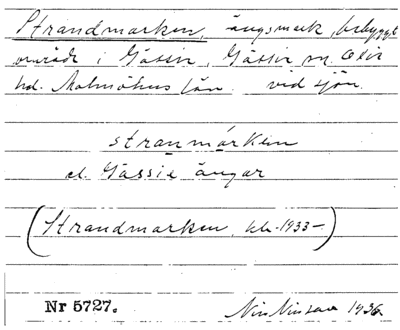 Strandmarken, ängsmark, bebyggt
område i Gässie, Gässie sn. Oxie
hd. Malmöhus län. vid sjön.
stranmarken
el. Gässie ängar
(Strandmarken, kbl. 1933-)
Nr 5727. 1936